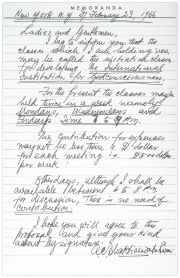 MEMORANDA
New York N.Y. 27 February 23, 1966
Ladies and Gentlemen,
I beg to inform you that the
classes which I am holding now
may be called the initiated classes
of the International
Institution for God consciousness.
For the present the classes may be
held thrice in a week namely
Mondays, Wednesdays and
Fridays
The contribution for expenses
may not be less than $ dollar
for each meeting i.e.
per week
Otherdays, although I shall be
available between 6 & 8 P.M.
for discussion, there is no need of
contribution.
I hope you will agree to this
proposal and give your kind
assent by signature.